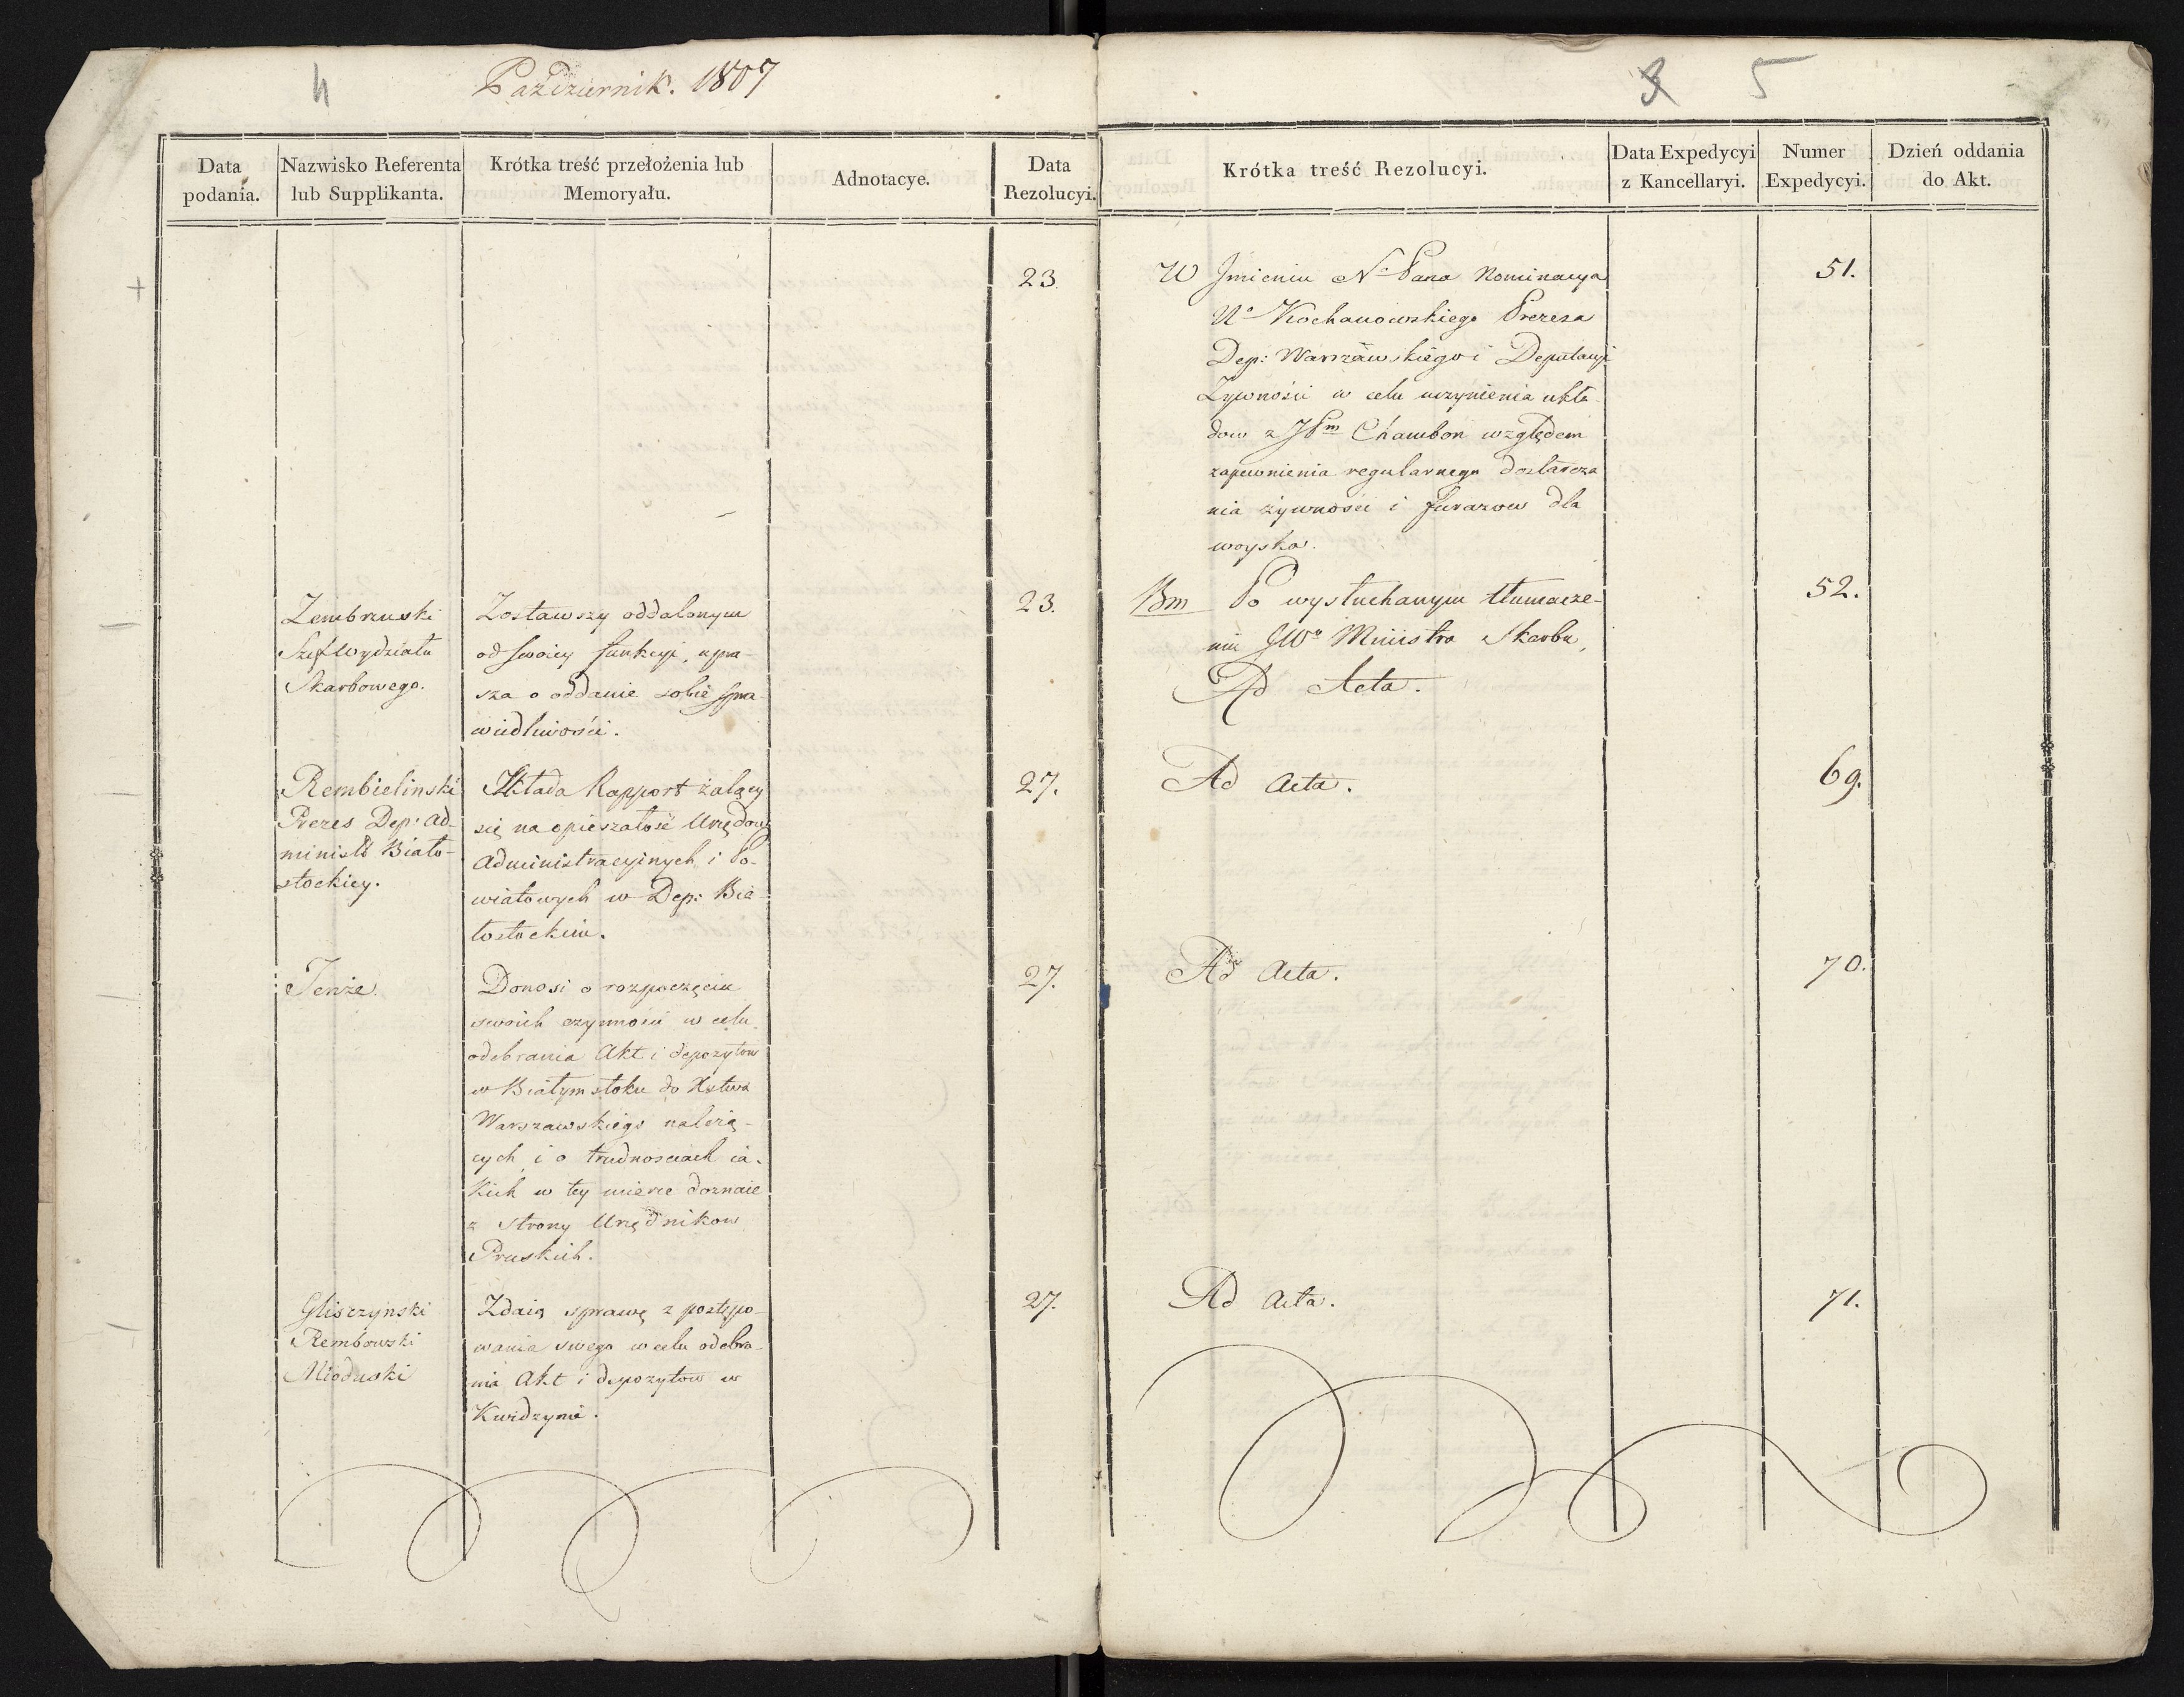 4
Październik. 1807
3 5
Data podania.
Nazwisko Referenta lub Supplikanta.
Krótka treść przełożenia lub Memoryału.
Adnotacye.
Data Rezolucyi.
Krótka treść Rezolucyi.
Data Expedycyi z Kancellaryi.
Numer Expedycyi.
Dzień oddania do Akt.
23.
W Jmieniu N: Pana Nominacya
Ur Kochanowskiego Prezesa
Dep: Warszawskiego i Deputacyi
Zywnosci w celu uczynienia ukła-
dow z JPm Chambon względem
zapewnienia regularnego dostarcza
nia żywnosci i furazow dla
woyska.
51.
Zembrzuski
Szef Wydziału
Skarbowego.
Zostawszy oddalonym
od swoiey funkcyi, upra-
sza o oddanie sobie spra-
wiedliwości.
23.
Bm Po wysłuchanym tłumacze-
niu JWo Ministra Skarbu,
Ad Acta.
52.
Rembielinski
Prezes Dep: Ad-
ministr Biało-
stockiey.
Składa Rapport żalący
się na opieszałość Urzędow
Administracyinych i Po-
wiatowych w Dep: Bia-
łostockim.
27.
Ad Acta.
69.
Tenże.
Donosi o rozpoczęciu
swoich czynnosci w celu
odebrania Akt i depozytow
w Białymstoku do Xstwa
Warszawskiego należą-
cych, i o trudnosciach ia-
kich w tey mierze doznaie
z strony Urzędnikow
Pruskich.
27.
Ad Acta.
70.
Gliszczynski
Rembowski
Mioduski
Zdaią sprawę z postępo-
wania swego w celu odebra-
nia Akt i depozytow w
Kwidzynie.
27.
Ad Acta.
71.